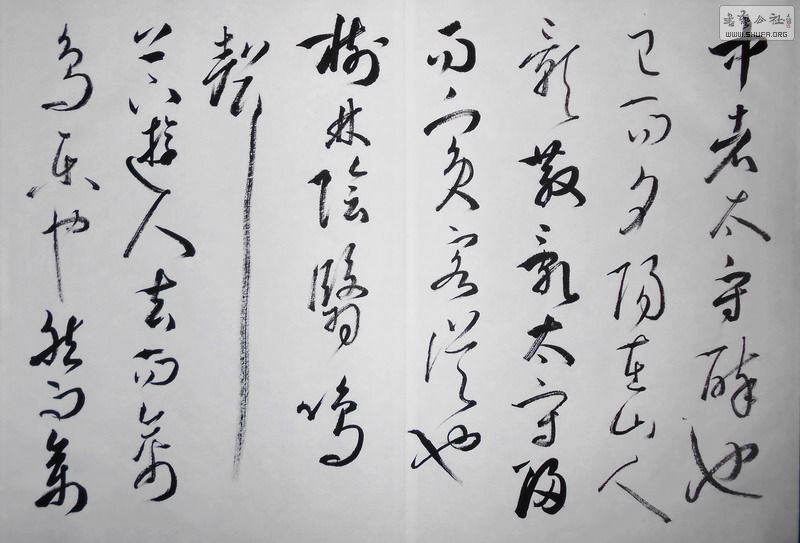 中者太守醉也
已而夕陽在山人
影散亂太守歸
而賓客從也
樹林陰翳鳴
聲
上下遊人去而禽
鳥樂也然而禽
书法公社
WWW.SHUFA.ORG